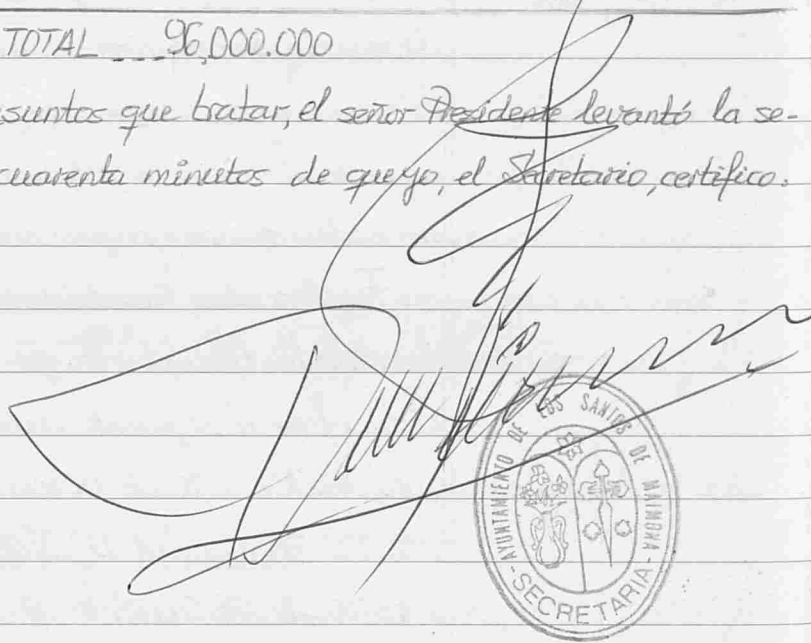 TOTAL ___ 96,000.000
asuntos que tratar, el señor Presidente levantó la se-
cuarenta minutos de que yo, el Secretario, certifico.
AYUNTAMIENTO DE LOS SANTOS DE MAIMONA
- SECRETARIA -